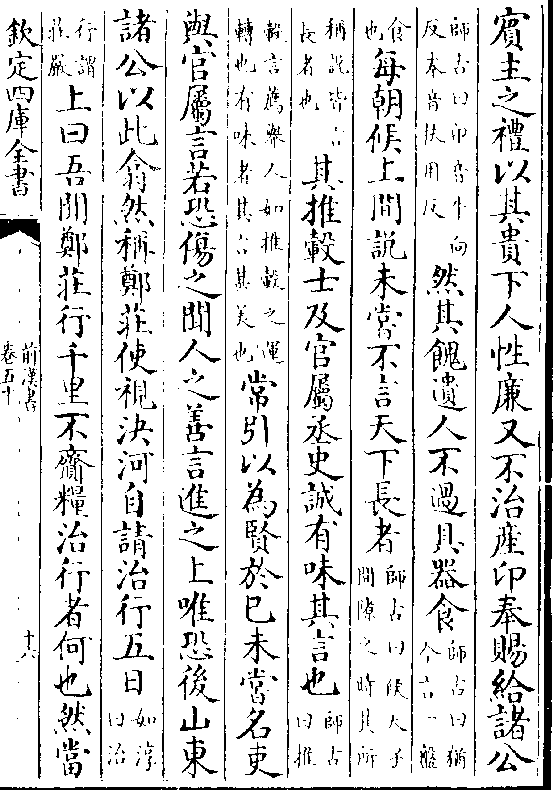 賓主之禮以其貴下人性廉又不治産卬奉賜給諸公
師古曰卬音牛向反奉音扶用反然其餽遺人不過具器食師古曰猶今言一盤
食也每朝候上間説未嘗不言天下長者師古曰候天子間隙之時其所
稱説皆言長者也其推轂士及官屬丞史誠有味其言也師古曰推
轂言薦舉人如推轂之運轉也有味者其言其美也常引以為賢於已未嘗名吏
與官屬言若恐傷之聞人之善言進之上唯恐後山東
諸公以此翕然稱鄭莊使視決河自請治行五日如淳曰治
行謂莊嚴上曰吾聞鄭莊行千里不齎糧治行者何也然當
欽定四庫全書
前漢書
卷五十
十六